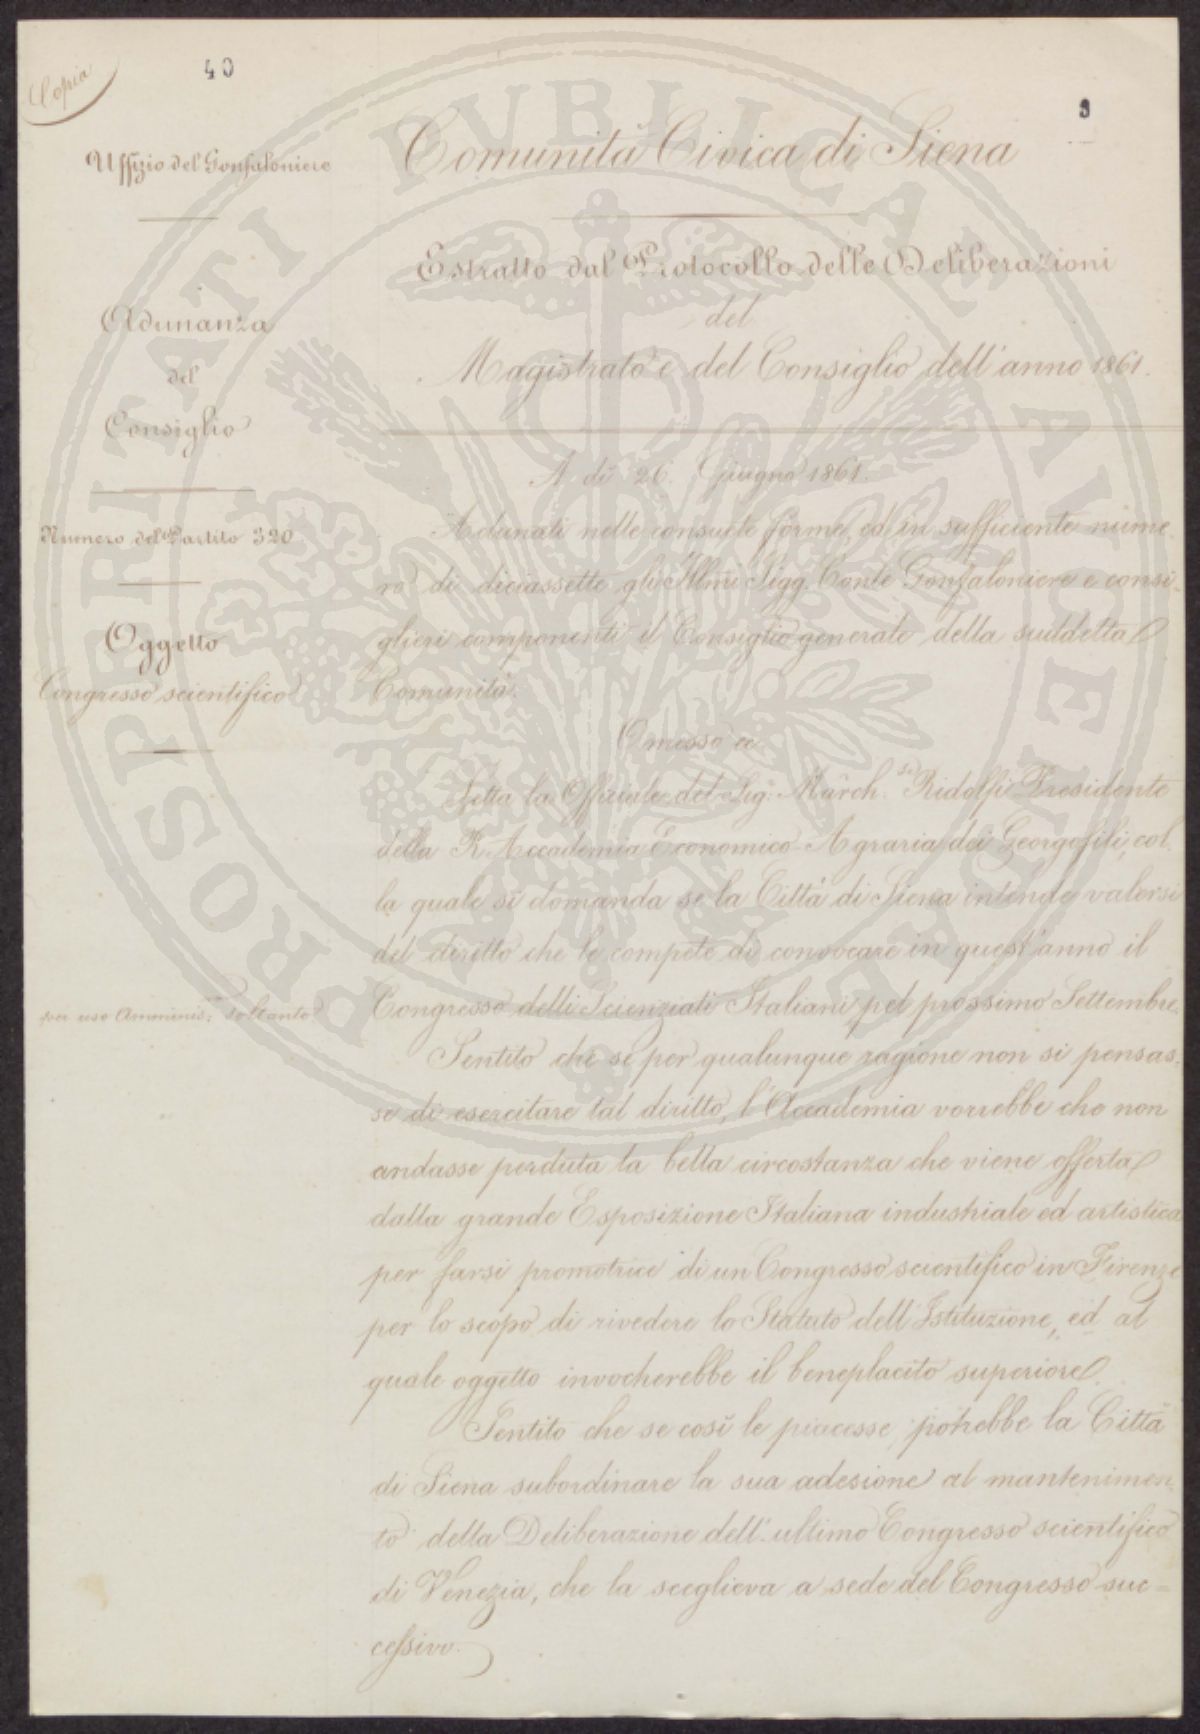 Copia
40
9
Uffizio del Gonfaloniere
Adunanza
del
Consiglio
Numero del Partito 320
Oggetto
Congresso scientifico
per uso Amminis: soltanto
Comunità Civica di Siena
Estratto dal Protocollo delle Deliberazioni
del
Magistrato e del Consiglio dell'anno 1861.
A dì 26. Giugno 1861.
Adunati nelle consuete forme, ed in sufficiente nume-
ro di diciassette gli Illmi Sigg. Conte Gonfaloniere e consi-
glieri componenti il Consiglio generale della suddetta
Comunità.
Omesso ec.
Letta la Officiale del Sig. March.se Ridolfi Presidente
della R. Accademia Economico-Agraria dei Georgofili, col-
la quale si domanda se la Città di Siena intende valersi
del diritto che le compete di convocare in quest'anno il
Congresso delli Scienziati Italiani pel prossimo Settembre.
Sentito che se per qualunque ragione non si pensas-
se di esercitare tal diritto, l'Accademia vorrebbe che non
andasse perduta la bella circostanza che viene offerta
dalla grande Esposizione Italiana industriale ed artistica
per farsi promotrice di un Congresso scientifico in Firenze
per lo scopo di rivedere lo Statuto dell'Istituzione, ed al
quale oggetto invocherebbe il beneplacito superiore.
Sentito che se così le piacesse, potrebbe la Città
di Siena subordinare la sua adesione al mantenimen-
to della Deliberazione dell'ultimo Congresso scientifico
di Venezia, che la sceglieva a sede del Congresso suc-
cessivo.
PROSPERITATI PVBLICAE AVGENDAE